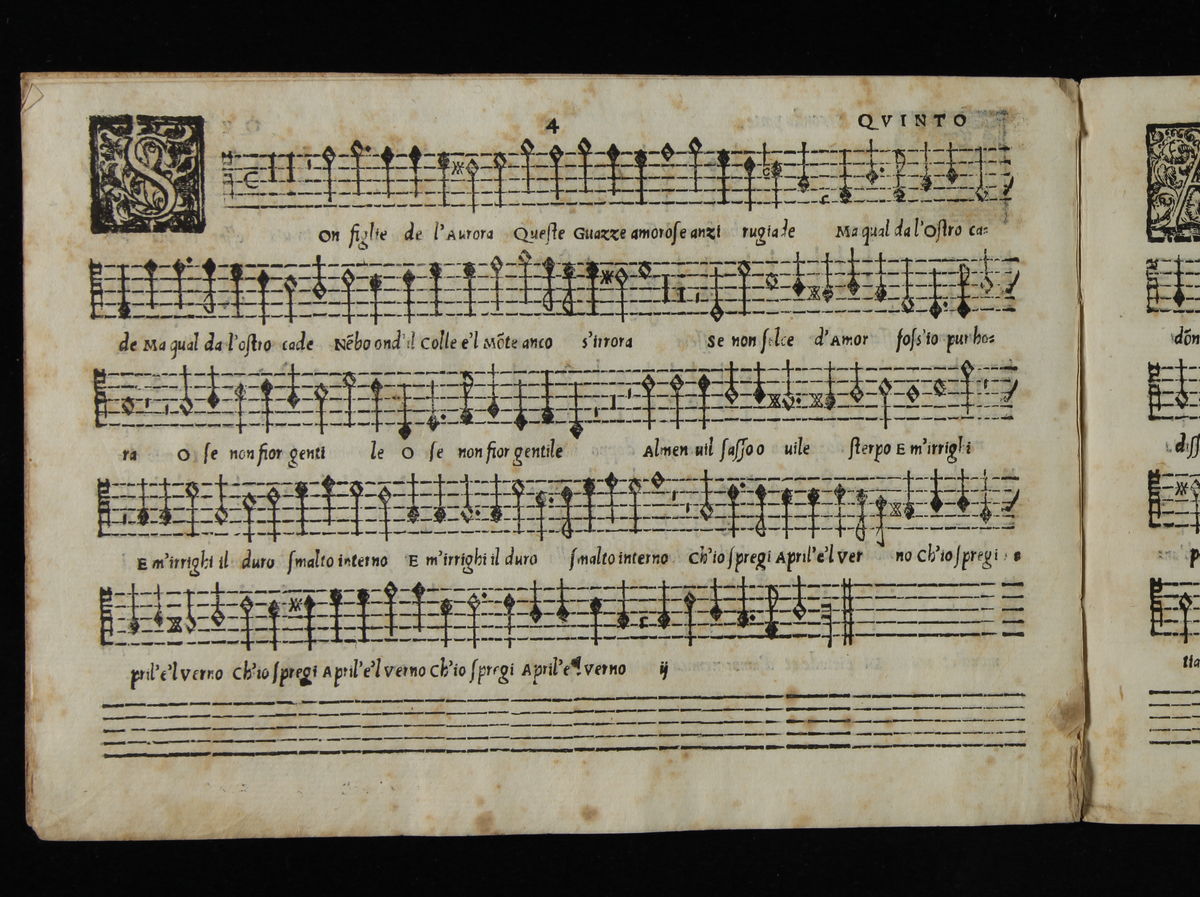 4 QVINTO
SOn figlie de l'Aurora Queste Guazze amorose anzi rugiade Ma qual da l'Ostro ca=
de Ma qual da l'ostro cade Nẽbo ond'il Colle e'l Mõte anco s'irrora Se non selce d'Amor foss'io pur ho=
ra O se non fior genti le O se non fior gentile Almen uil sasso o uile sterpo E m'irrighi
E m'irrighi il duro smalto interno E m'irrighi il duro smalto interno Ch'io spregi April'e'l ver no Ch'io spregi
pril'e'l verno Ch'io spregi April'e'l verno Ch'io spregi April'e'l verno ij
dõn
diss
p
tia